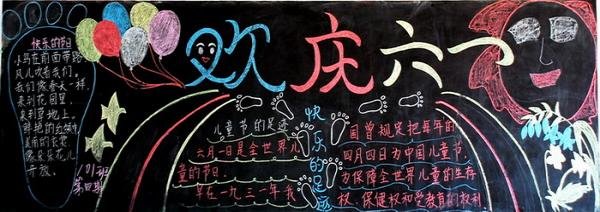 快乐的节日
小鸟在前面带路
风儿吹着我们。
我们像春天一样,
来到花园里,
来到草地上。
鲜艳的红领巾
美丽的衣裳
像朵朵花儿
开放。
101班
第四期
欢庆六一
儿童节的足迹
六月一日是全世界儿
童的节日.
早在一九三一年我
快乐的足迹
国曾规定把每年的
四月四日为中国儿童节.
为保障全世界儿童的生存
权、保健权和受教育的权利